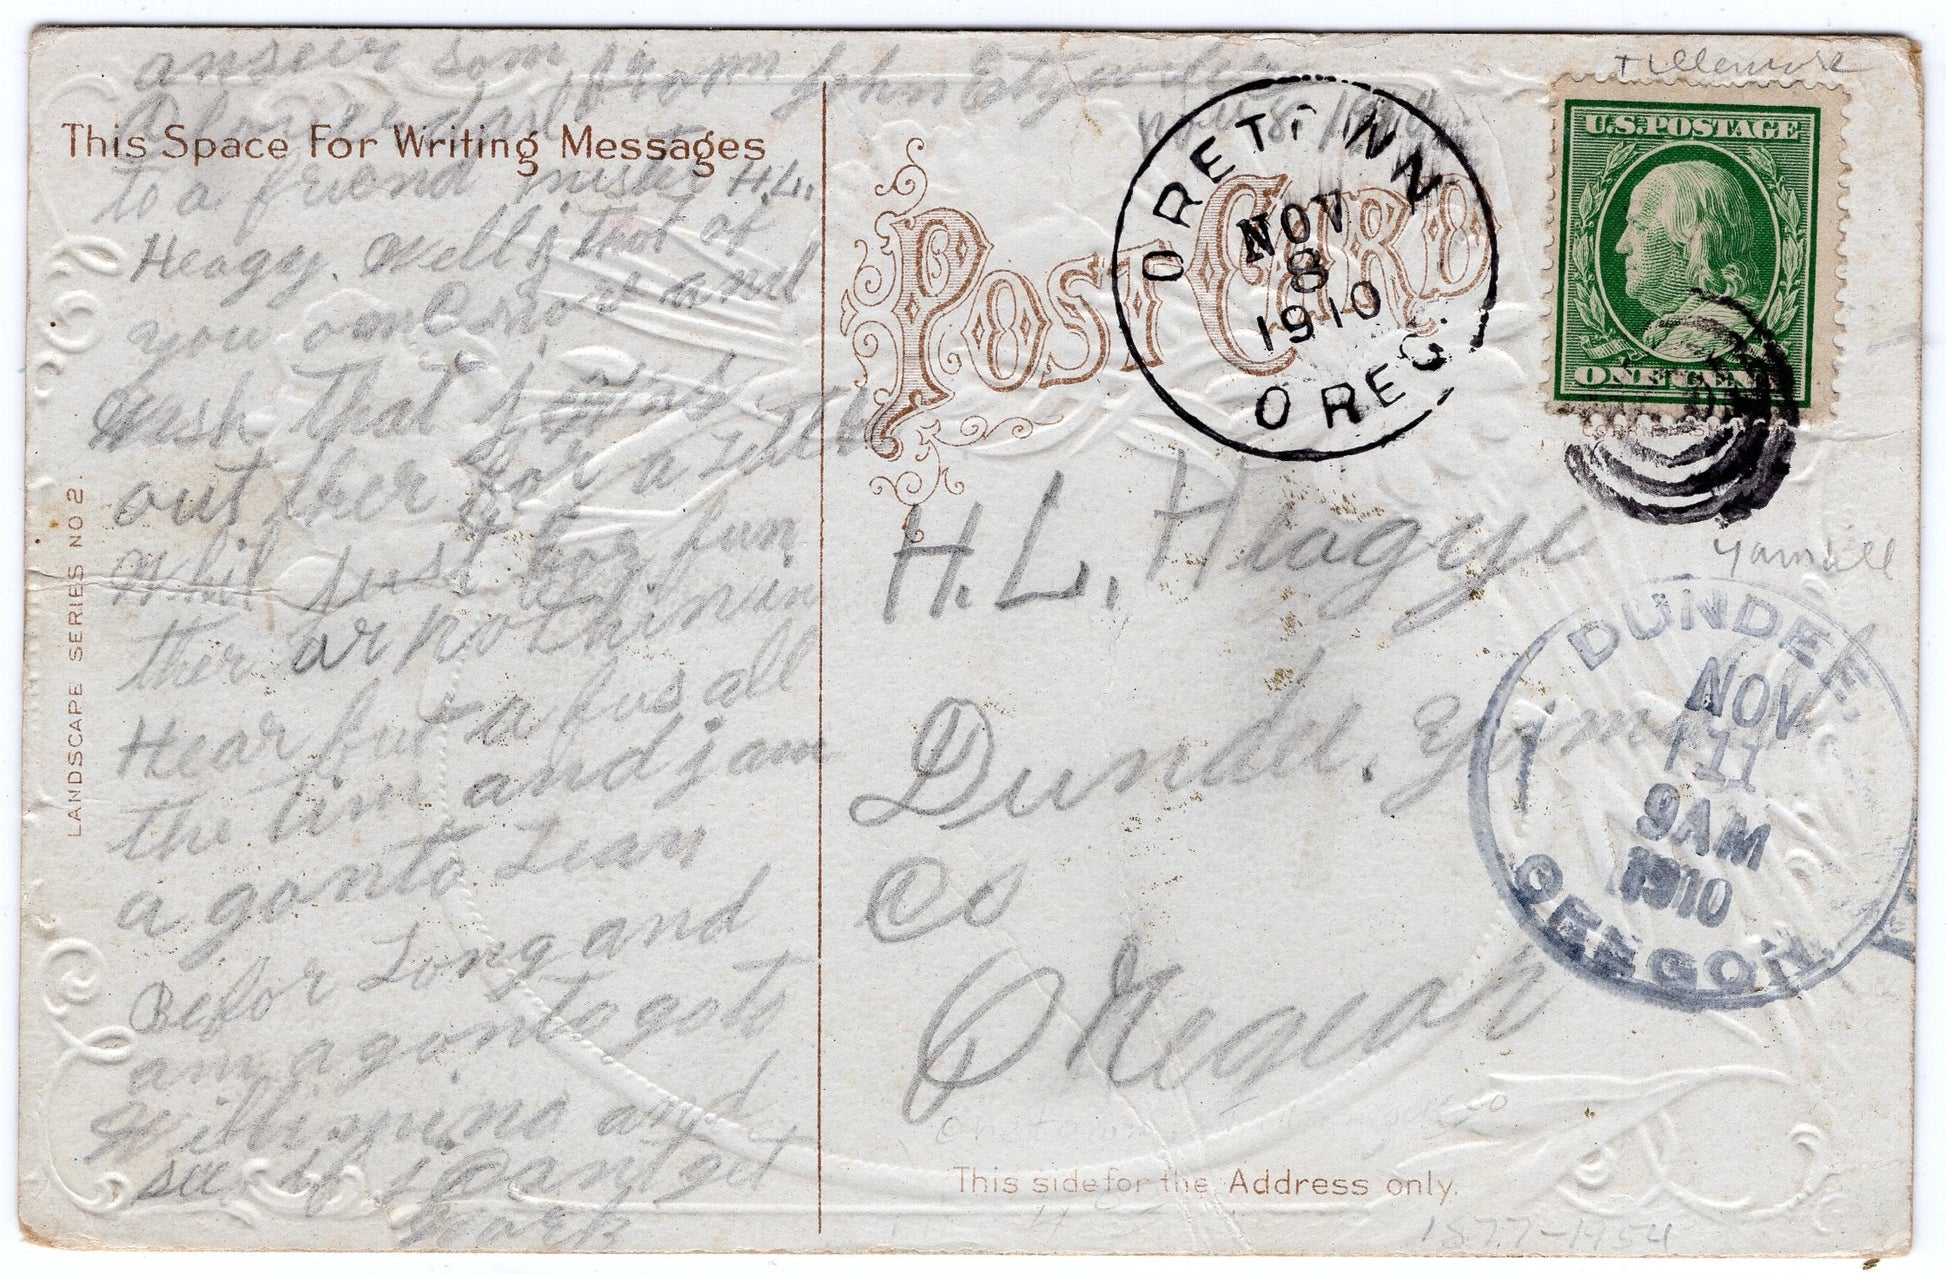 anseer som from John
Nov 8 1910
This Space For Writing Messages
to a friend mister H.L.
Heagy. Well j thot of
you onc mor and
Wish that j was
out ther for a little
Whil just for fun
ther ar nothin in
Hear but a fus all
the tim and j am
a gonto Leav
Befor Long and
am a gonto go to
Willimina and
see if j Can get
Work
LANDSCAPE SERIES NO 2.
POST CARD
ORETOWN
NOV
8
1910
OREG.
Tillemook
U.S. POSTAGE
ONE CENT
H.L. Heagy
Yamhill
Dundee, Yam
Co
Oregon
DUNDEE,
NOV
11
9AM
1910
OREGON.
This side for the Address only.
1877-1954